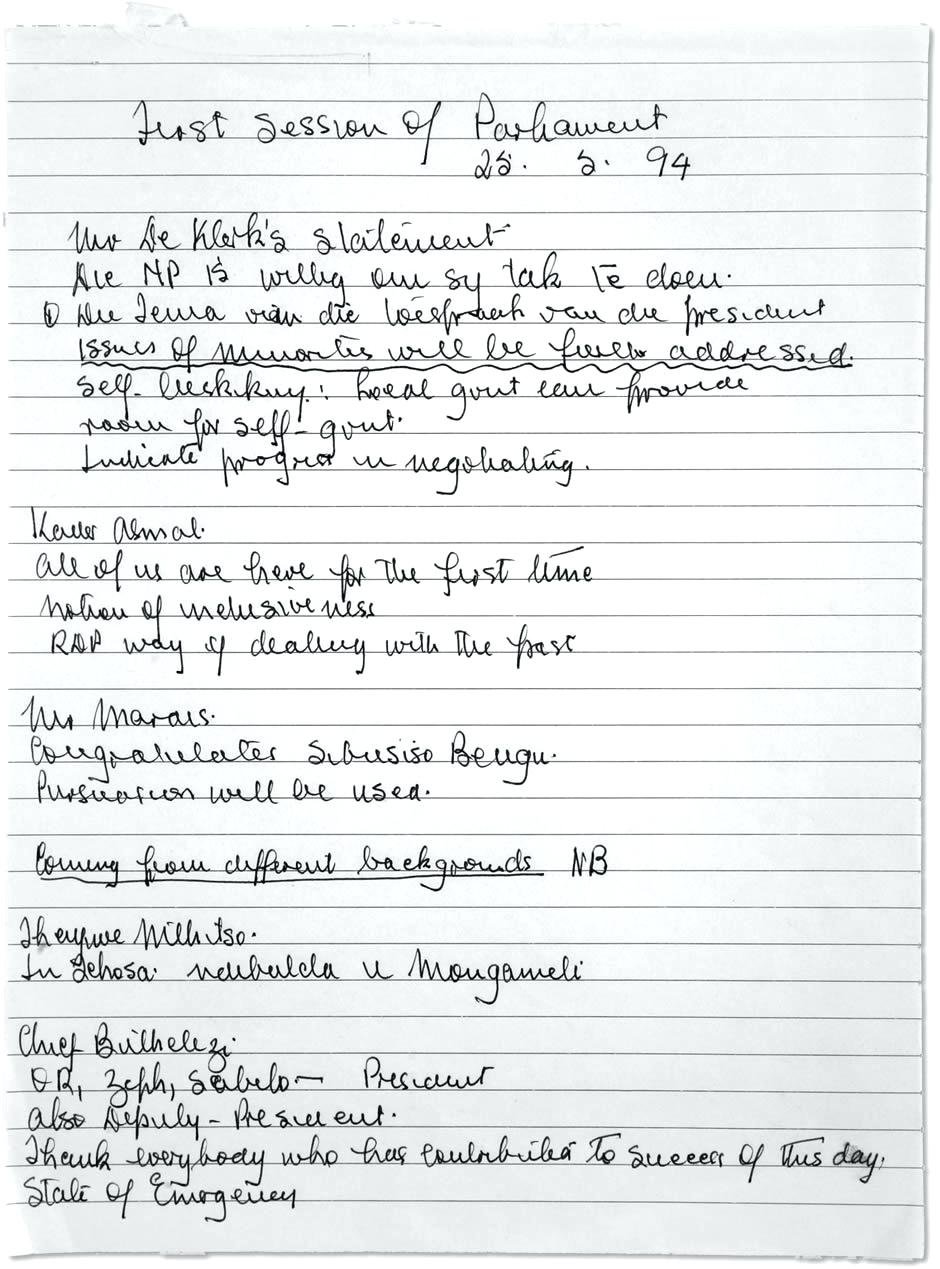 First Session of Parliament
25. 5. 94
Mr De Klerk's statement
Die NP is willig om sy tak te doen.
① Die Tema van die toespraak van die president
Issues of minorities will be further addressed.
Self- : Local govt can provide
room for self-govt.
Indicate progress in negotiating.
Kader Asmal.
All of us are here for the first time
Notion of inclusiveness
RDP way of dealing with the past
Mr Marais.
Congratulates Sibusiso Bengu.
Persuasion will be used.
Coming from different backgrounds NB
In Xhosa: ndibulela u Mongameli
Chief Buthelezi.
OR, Zeph, Sabelo — President
Also Deputy-President.
Thank everybody who has contributed to success of this day.
State of Emergency